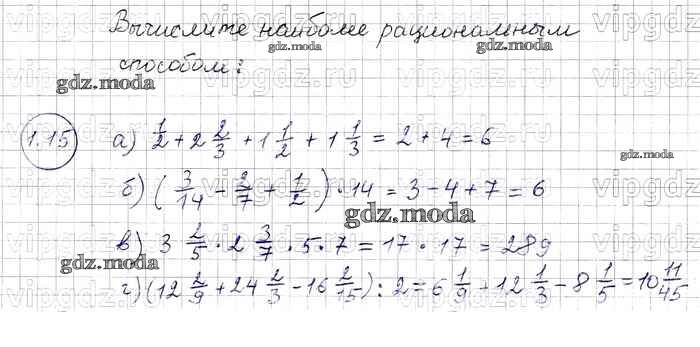 Вычислите наиболее рациональным
способом:
1.15 а) 1/2 + 2 2/3 + 1 1/2 + 1 1/3 = 2 + 4 = 6
б) (3/14 - 2/7 + 1/2) · 14 = 3 - 4 + 7 = 6
в) 3 2/5 · 2 3/7 · 5 · 7 = 17 · 17 = 289
г) (12 2/9 + 24 2/3 - 16 2/15) : 2 = 6 1/9 + 12 1/3 - 8 1/5 = 10 11/45
gdz.moda
gdz.moda
gdz.moda
gdz.moda
gdz.moda
gdz.moda
gdz.moda
vipgdz.ru